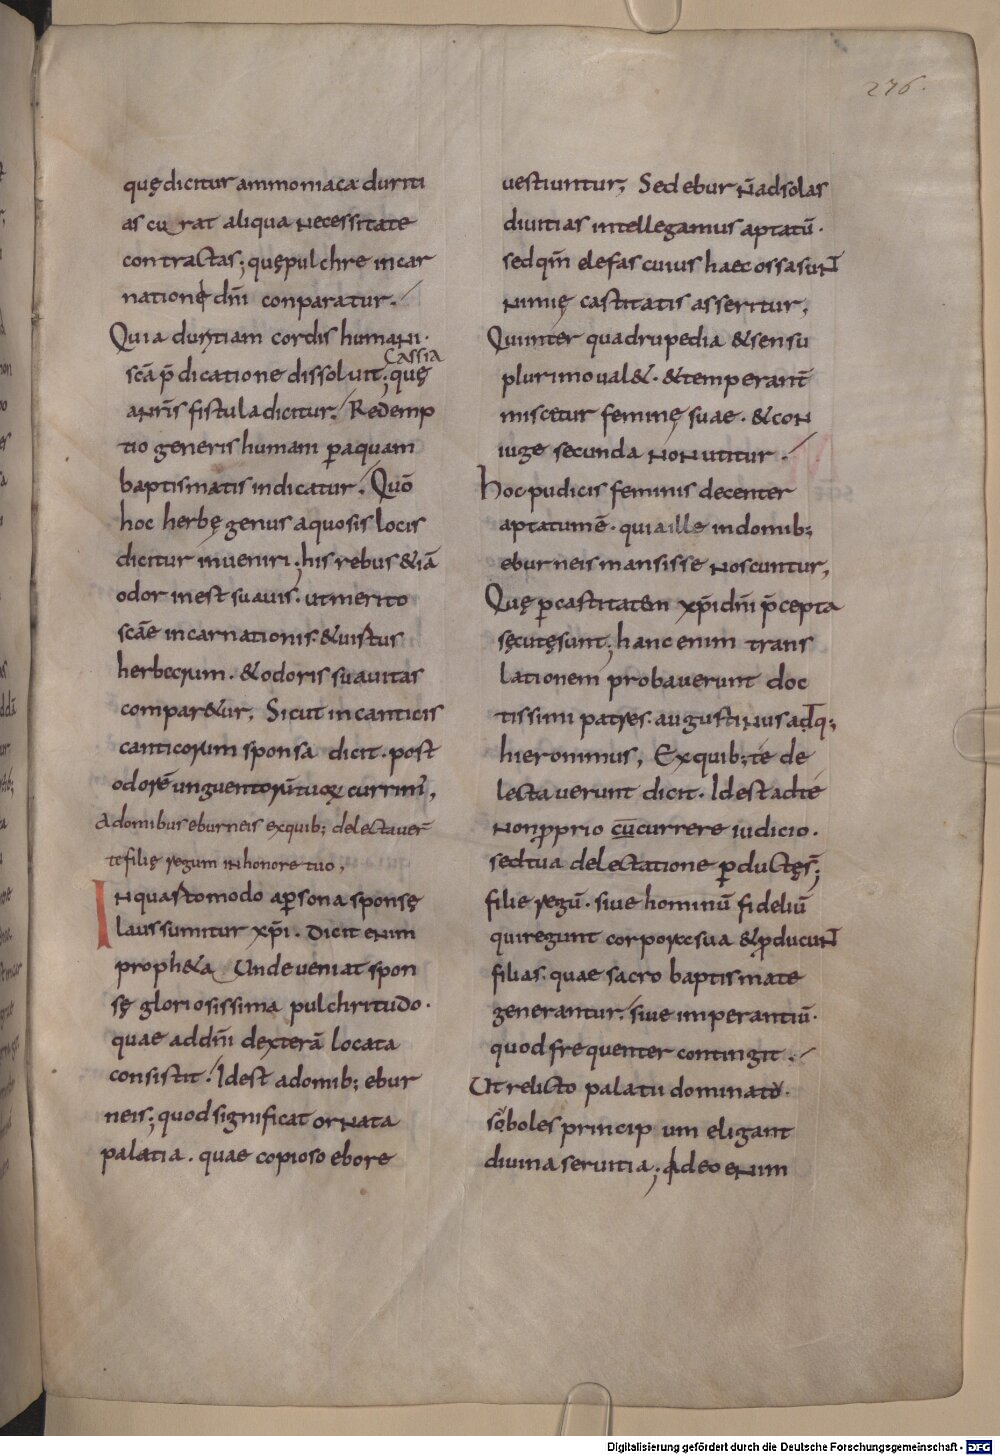 276.
quę dicitur ammoniaca duriti
as curat aliqua necessitate
contractas; quę pulchre incar
natione dn̄i conparatur.
Quia duritiam cordis humani.
Cassia
scā p̄dicatione dissoluit; quę
a nr̄is fistula dicitur. Redemp
tio generis humani ꝑ aquam
baptismatis indicatur. Quō
hoc herbę genus aquosis locis
dicitur inveniri; his rebus &iā
odor inest suavis. ut merito
scāe incarnationis & uirtus
herbarum. & odoris suavitas
compar&ur, Sicut in canticis
canticorum sponsa dicit. post
odorē unguentorū tuorꝝ currim᾽,
A domibus eburneis ex quib; delectaver̄
te filię regum in honore tuo,
In quasto modo a ꝑsona sponsę
laus sumitur xp̄i. dicit enim
proph&a Unde veniat spon
sę gloriosissima pulchritudo.
quae ad dn̄i dexterā locata
consistit. Id est a domib; ebur
neis; quod significat ornata
palatia. quae copioso ebore
vestiuntur, Sed ebur n̄ ad solas
divitias intellegamus aptatū.
sed qm̄ elefas cuius haec ossa sunt
nimię castitatis asseritur,
Qui inter quadrupedia & sensu
plurimo val&. & temperant̄
miscetur feminę suae. & con
iuge secunda non utitur.
hoc pudicis feminis decenter
aptatum ē. quia ille in domib;
eburneis mansisse noscuntur,
Quę ꝑ castitatem xp̄i dn̄i p̄cepta
sęcutę sunt; hanc enim trans
lationem probaverunt doc
tissimi patres. augustinus adq;
hieronimus, Ex quib; te de
lectaverunt dicit. Id est ad te
non ꝓprio cucurrere iudicio.
sed tua delectatione ꝑductę s̄;
filie regū. sive hominū fideliū
qui regunt corpora sua & ꝓducunt
filias. quae sacro baptismate
generantur. sive imperantiū.
quod frequenter contingit.
Ut relicto palatii dominatō.
soboles principum eligant
divina servitia; Adeo enim
Digitalisierung gefördert durch die Deutsche Forschungsgemeinschaft - DFG